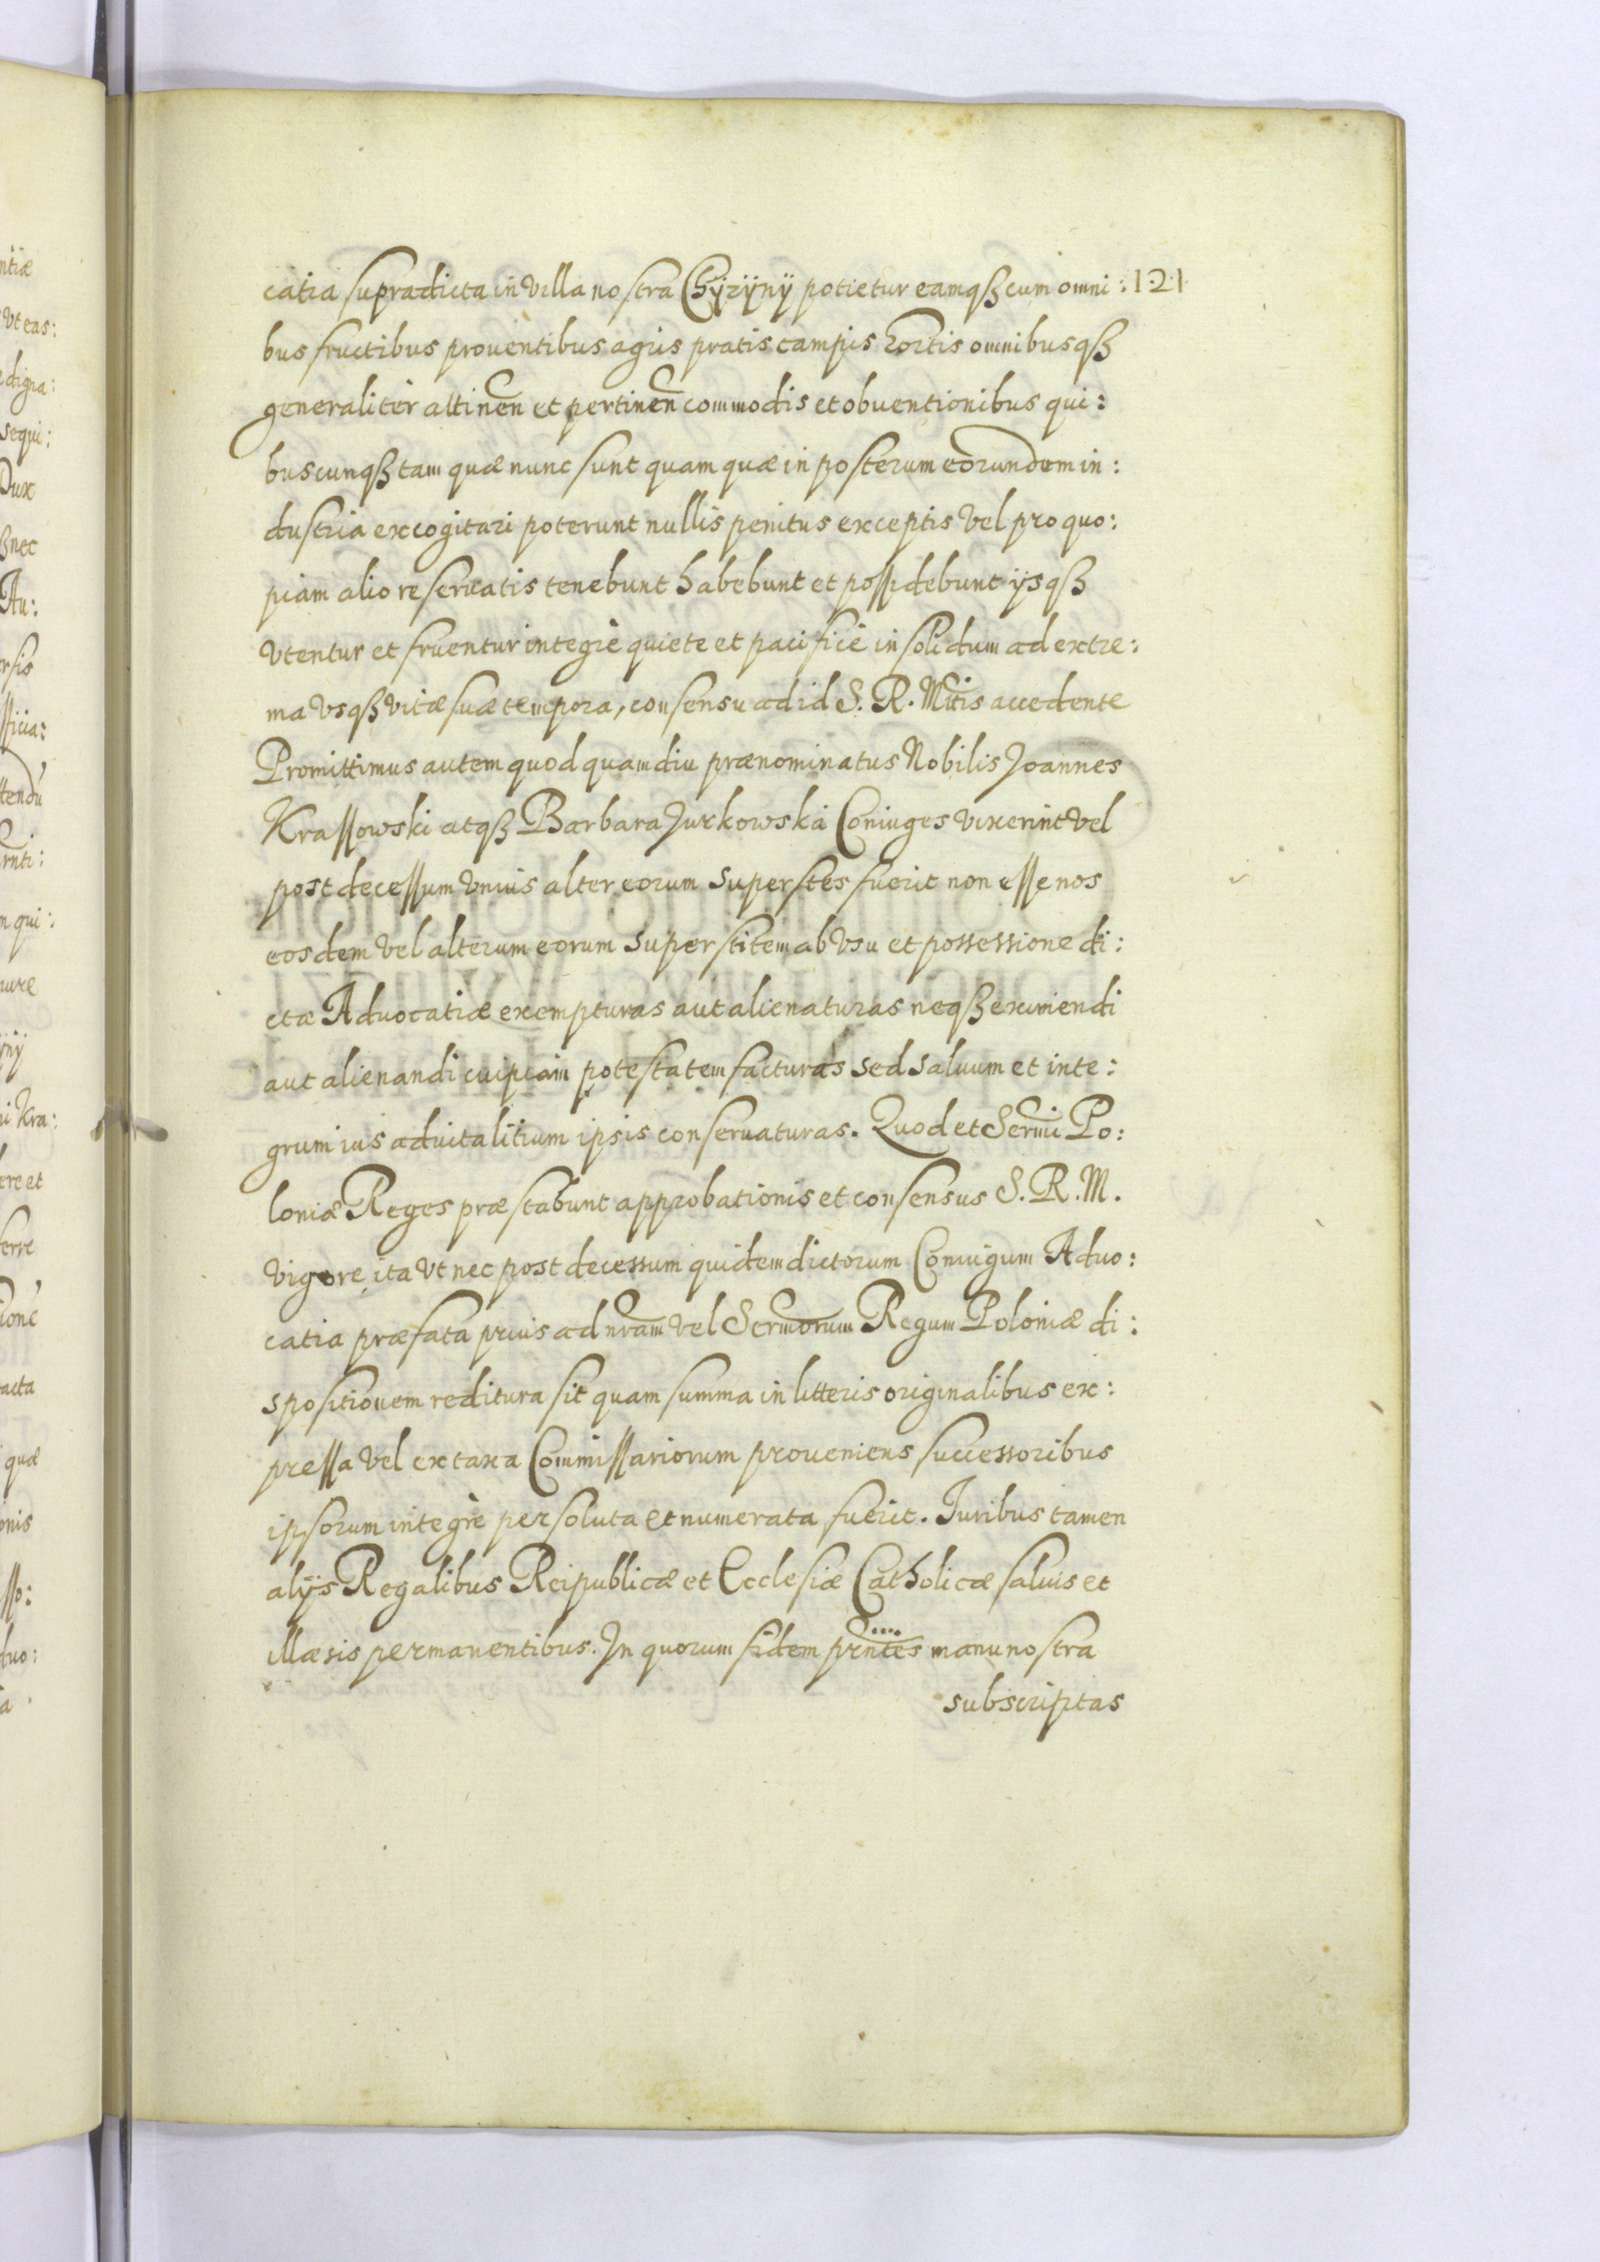 catia supradicta in villa nostra Chÿzÿnÿ potietur eamqꝫ cum omni: 121
bus fructibus proventibus agris pratis campis hortis omnibusqꝫ
generaliter attinen et pertinen commodis et obventionibus qui:
buscunqꝫ tam quæ nunc sunt quam quæ in posterum eorundem in:
dustria excogitari poterunt nullis penitus exceptis vel pro quo:
piam alio reservatis tenebunt habebunt et possidebunt ijsqꝫ
vtentur et fruentur integrè quiete et pacificè in solidum ad extre:
ma vsqꝫ vitæ suæ tempora, consensu ad id S. R. Mttis accedente
Promittimus autem quod quamdiu prænominatus Nobilis Joannes
Krassowski atqꝫ Barbara Jurkowska Coniuges vixerint vel
post decessum vnius alter eorum superstes fuerit non esse nos
eosdem vel alterum eorum superstitem ab vsu et possessione di:
ctæ Advocatiæ exempturas aut alienaturas neqꝫ eximendi
aut alienandi cuipiam potestatem facturas sed saluum et inte:
grum ius aduitalitium ipsis conseruaturas. Quod et Sermi Po:
loniæ Reges præstabunt approbationis et consensus S. R. M.
vigore ita vt nec post decessum quidem dictorum Coniugum Aduo:
catia præfata prius ad nram vel Sermorum Regum Poloniæ di:
spositionem reditura sit quam summa in litteris originalibus ex:
pressa vel ex taxa Commissariorum proueniens successoribus
ipsorum integrè persoluta et numerata fuerit. Juribus tamen
alijs Regalibus Reipublicæ et Ecclesiæ Catholicæ saluis et
illæsis permanentibus. In quorum fidem prntes manu nostra
subscriptas